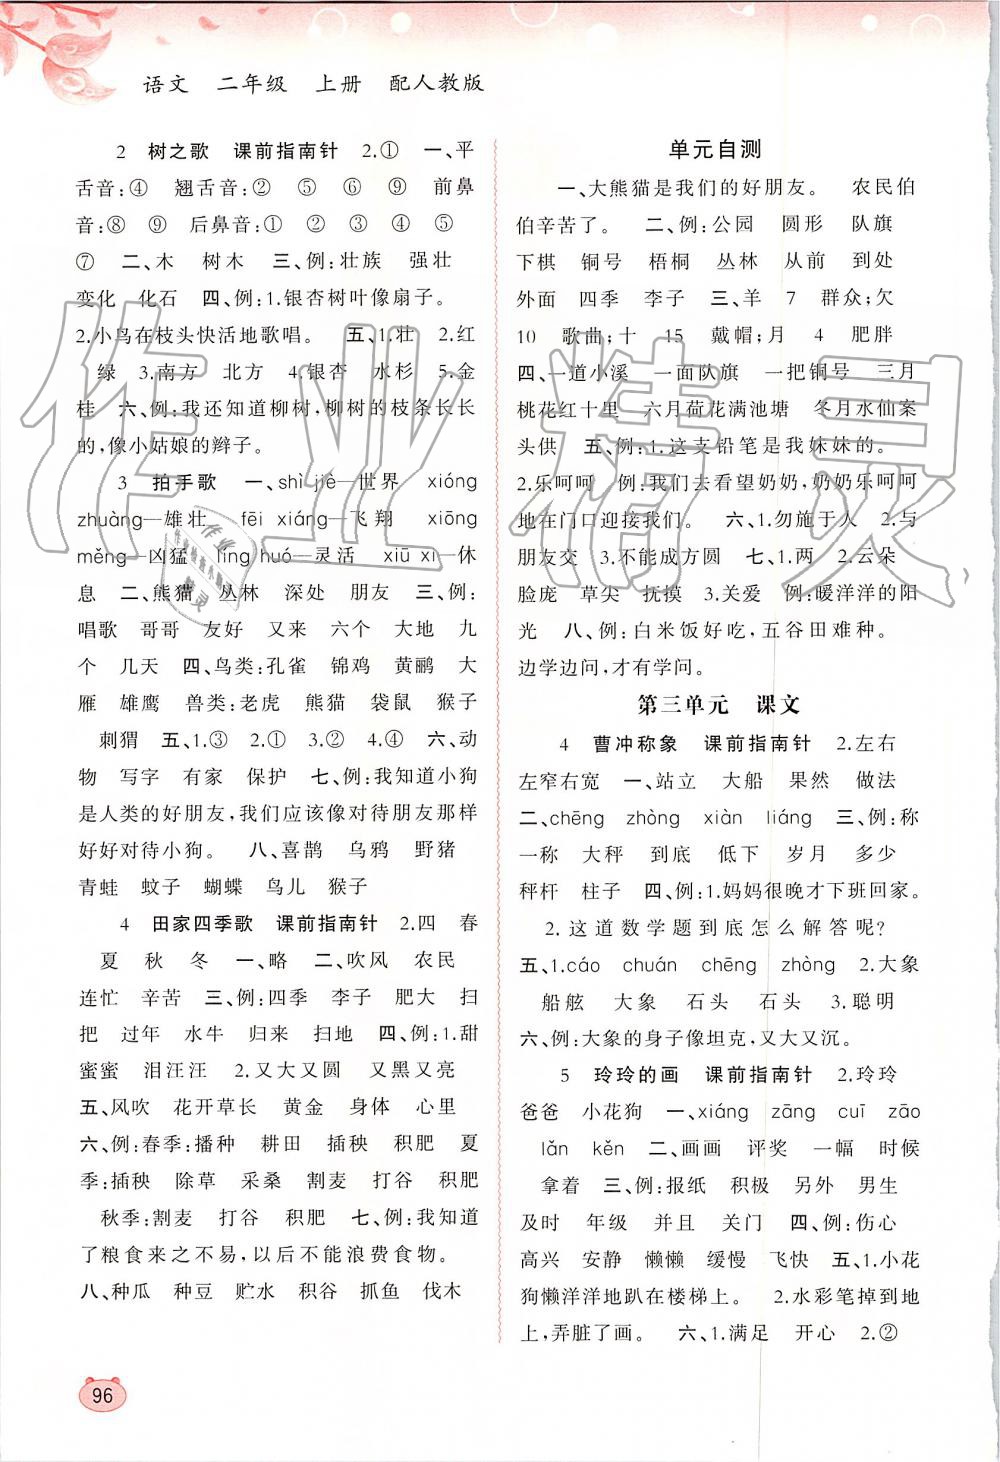 语文 二年级 上册 配人教版
2 树之歌 课前指南针 2.① 一、平
舌音:④ 翘舌音:② ⑤ ⑥ ⑨ 前鼻
音:⑧ ⑨ 后鼻音:① ② ③ ④ ⑤
⑦ 二、木 树木 三、例:壮族 强壮
变化 化石 四、例:1.银杏树叶像扇子。
2.小鸟在枝头快活地歌唱。 五、1.壮 2.红
绿 3.南方 北方 4.银杏 水杉 5.金
桂 六、例:我还知道柳树,柳树的枝条长长
的,像小姑娘的辫子。
3 拍手歌 一、shì jiè—世界 xióng
zhuàng—雄壮 fēi xiáng—飞翔 xiōng
měng—凶猛 líng huó—灵活 xiū xi—休
息 二、熊猫 丛林 深处 朋友 三、例:
唱歌 哥哥 友好 又来 六个 大地 九
个 几天 四、鸟类:孔雀 锦鸡 黄鹂 大
雁 雄鹰 兽类:老虎 熊猫 袋鼠 猴子
刺猬 五、1.③ 2.① 3.② 4.④ 六、动
物 写字 有家 保护 七、例:我知道小狗
是人类的好朋友,我们应该像对待朋友那样
好好对待小狗。 八、喜鹊 乌鸦 野猪
青蛙 蚊子 蝴蝶 鸟儿 猴子
4 田家四季歌 课前指南针 2.四 春
夏 秋 冬 一、略 二、吹风 农民
连忙 辛苦 三、例:四季 李子 肥大 扫
把 过年 水牛 归来 扫地 四、例:1.甜
蜜蜜 泪汪汪 2.又大又圆 又黑又亮
五、风吹 花开草长 黄金 身体 心里
六、例:春季:播种 耕田 插秧 积肥 夏
季:插秧 除草 采桑 割麦 打谷 积肥
秋季:割麦 打谷 积肥 七、例:我知道
了粮食来之不易,以后不能浪费食物。
八、种瓜 种豆 贮水 积谷 抓鱼 伐木
96
单元自测
一、大熊猫是我们的好朋友。 农民伯
伯辛苦了。 二、例:公园 圆形 队旗
下棋 铜号 梧桐 丛林 从前 到处
外面 四季 李子 三、羊 7 群众;欠
10 歌曲;十 15 戴帽;月 4 肥胖
四、一道小溪 一面队旗 一把铜号 三月
桃花红十里 六月荷花满池塘 冬月水仙案
头供 五、例:1.这支铅笔是我妹妹的。
2.乐呵呵 例:我们去看望奶奶,奶奶乐呵呵
地在门口迎接我们。 六、1.勿施于人 2.与
朋友交 3.不能成方圆 七、1.两 2.云朵
脸庞 草尖 抚摸 3.关爱 例:暖洋洋的阳
光 八、例:白米饭好吃,五谷田难种。
边学边问,才有学问。
第三单元 课文
4 曹冲称象 课前指南针 2.左右
左窄右宽 一、站立 大船 果然 做法
二、chēng zhòng xiàn liáng 三、例:称
一称 大秤 到底 低下 岁月 多少
秤杆 柱子 四、例:1.妈妈很晚才下班回家。
2.这道数学题到底怎么解答呢?
五、1.cáo chuán chēng zhòng 2.大象
船舷 大象 石头 石头 3.聪明
六、例:大象的身子像坦克,又大又沉。
5 玲玲的画 课前指南针 2.玲玲
爸爸 小花狗 一、xiáng zāng cuī zāo
lǎn kěn 二、画画 评奖 一幅 时候
拿着 三、例:报纸 积极 另外 男生
及时 年级 并且 关门 四、例:伤心
高兴 安静 懒懒 缓慢 飞快 五、1.小花
狗懒洋洋地趴在楼梯上。 2.水彩笔掉到地
上,弄脏了画。 六、1.满足 开心 2.②
作业精灵